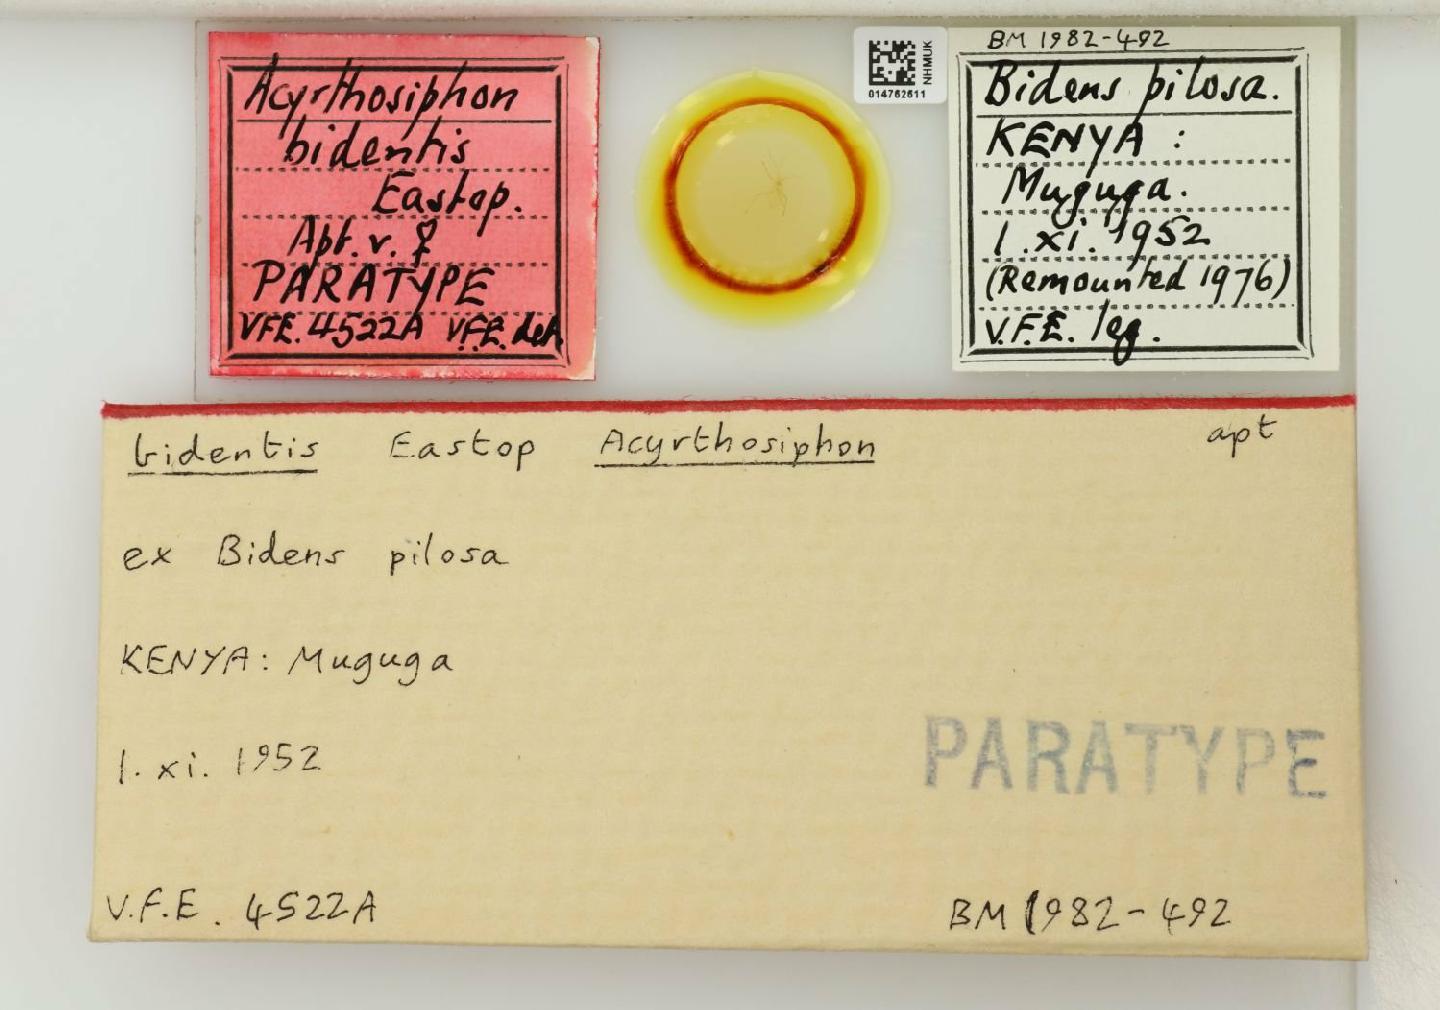 Acyrthosiphon
bidentis
Eastop.
Apt. v. ♀
PARATYPE
V.F.E. 4522A V.F.E. det.
NHMUK
014762611
BM 1982-492
Bidens pilosa.
KENYA :
Muguga.
1. xi. 1952
(Remounted 1976)
V.F.E. leg.
bidentis Eastop Acyrthosiphon apt
ex Bidens pilosa
KENYA: Muguga
1. xi. 1952
PARATYPE
V.F.E. 4522A BM 1982-492